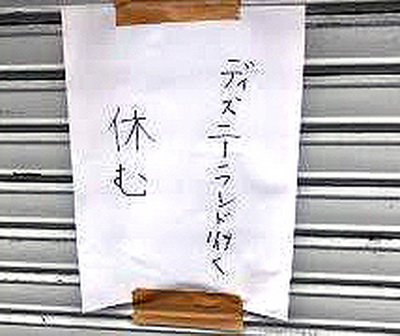 ディズニーランド行く
休む